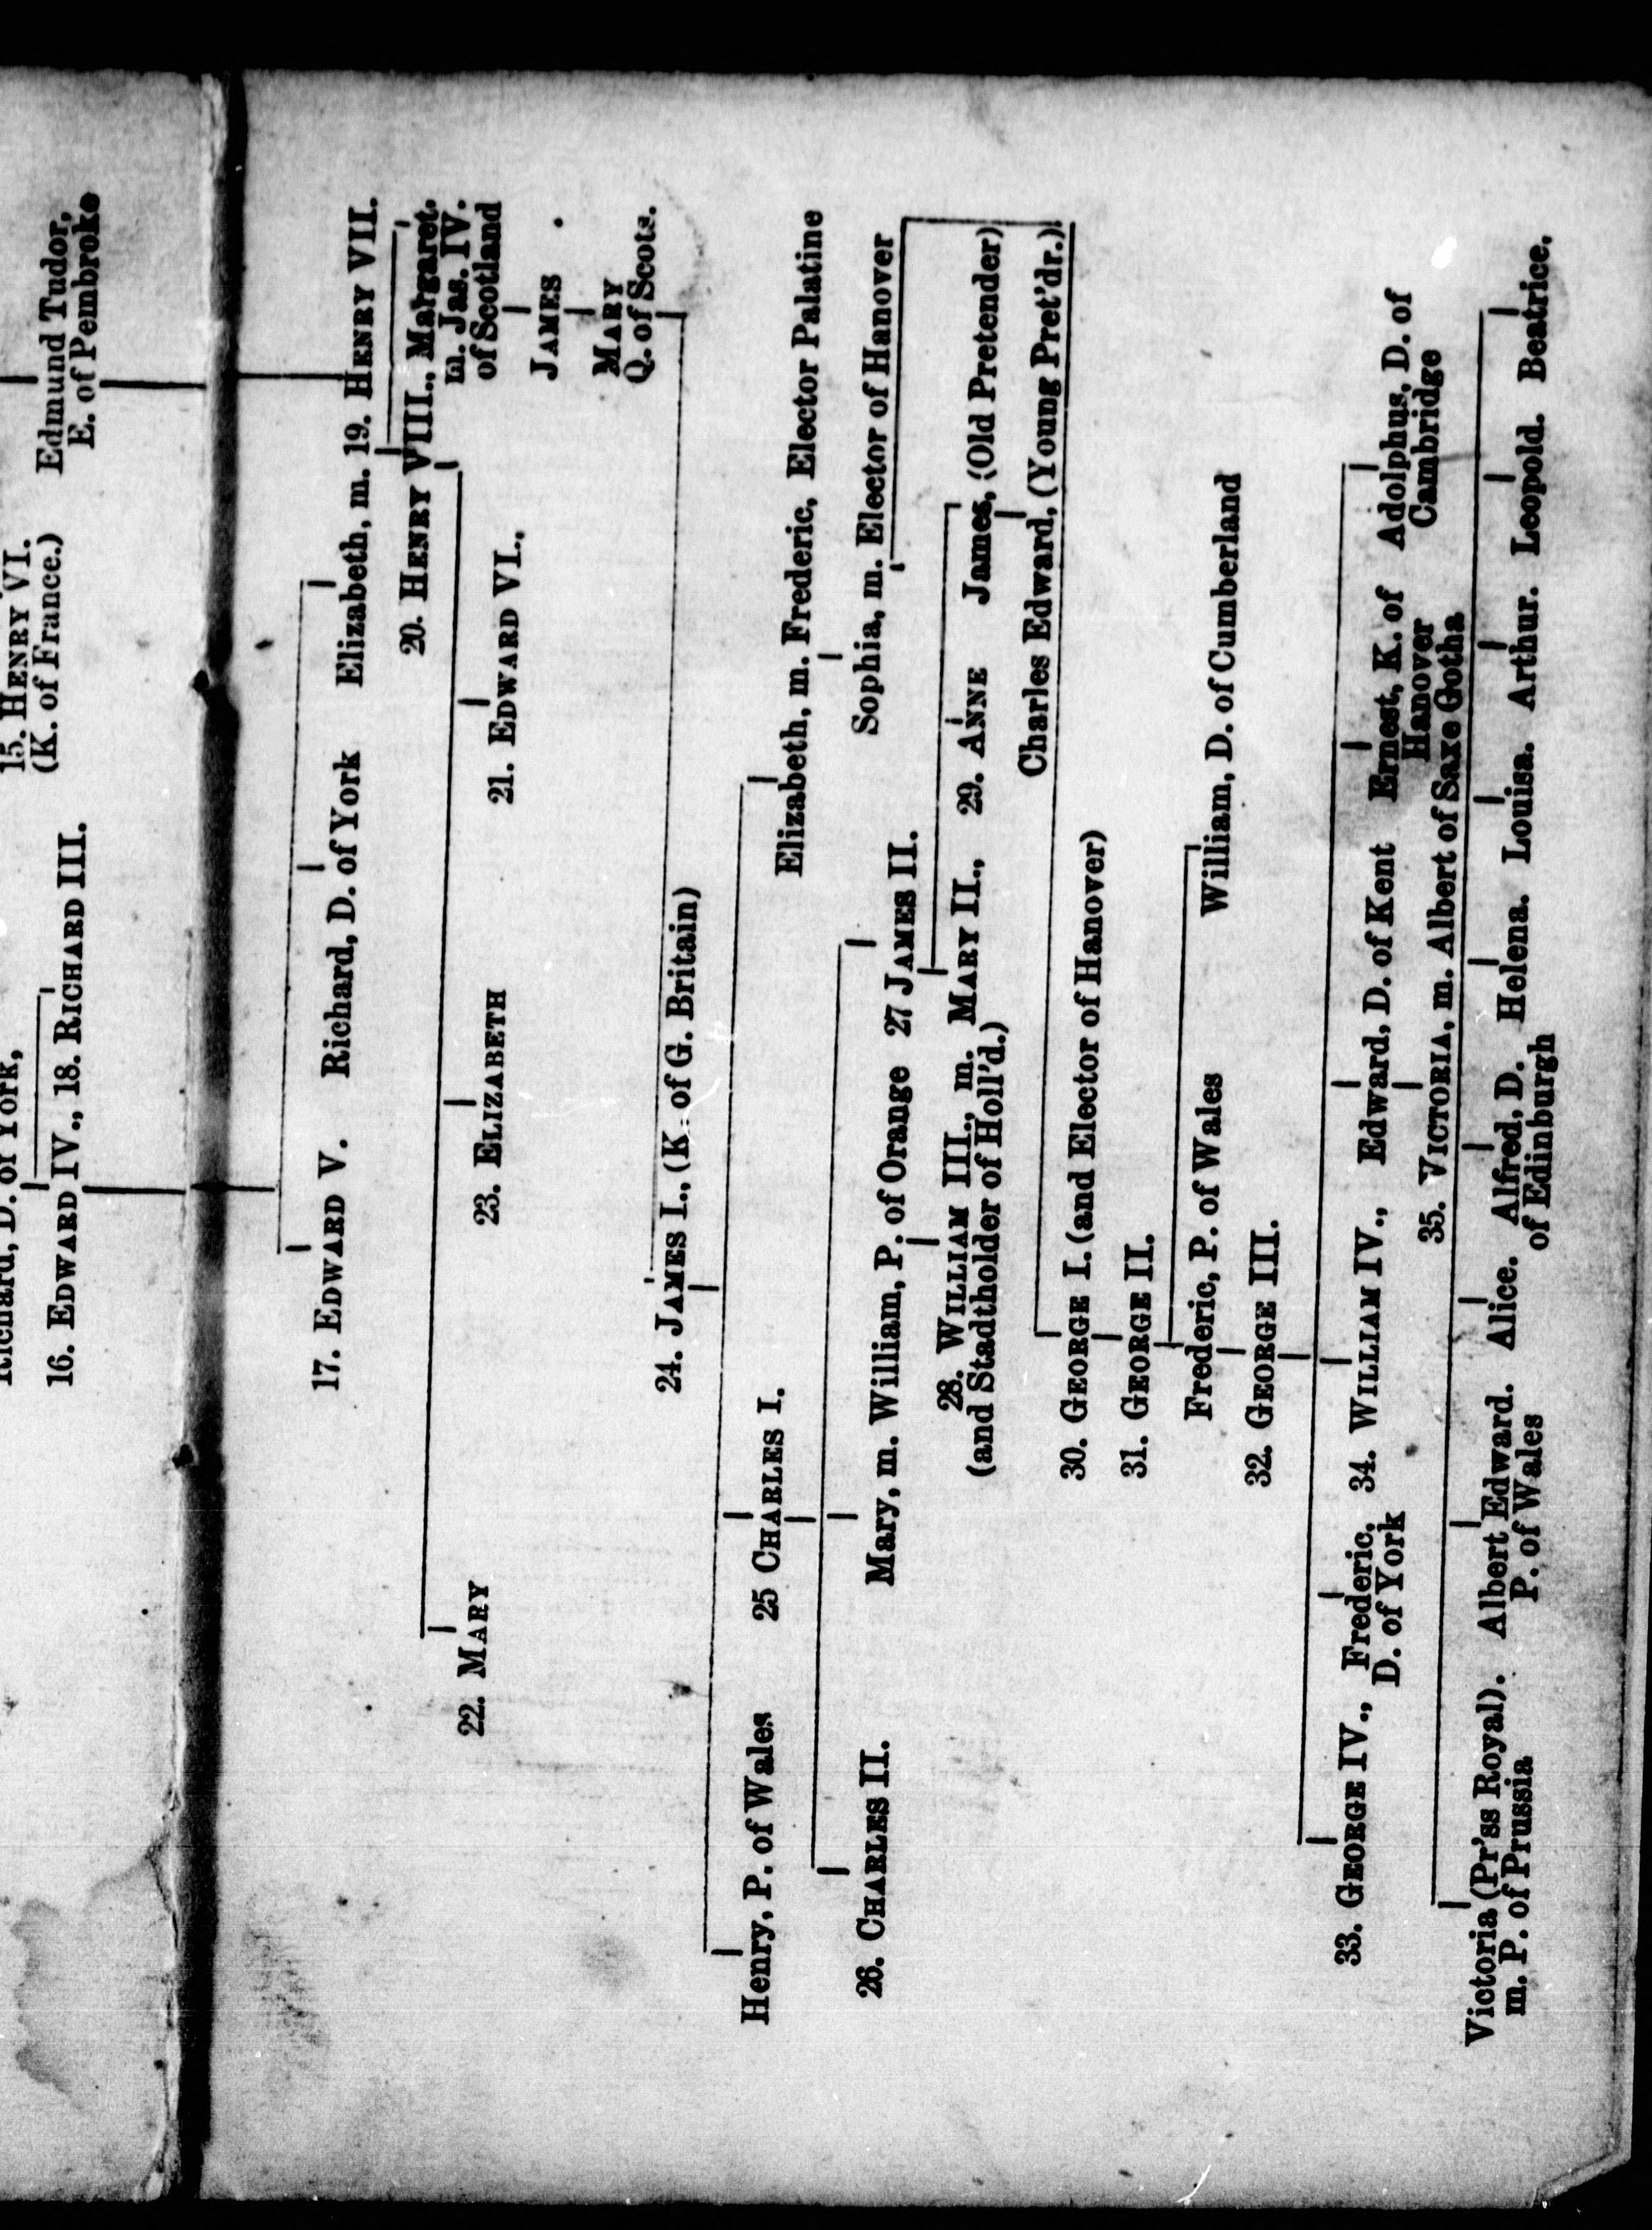 Richard, D. of York,
15. HENRY VI.
(K. of France.)
Edmund Tudor,
E. of Pembroke
16. EDWARD IV., 18. RICHARD III.
17. EDWARD V. Richard, D. of York Elizabeth, m. 19. HENRY VII.
20. HENRY VIII., Margaret.
m. Jas. IV.
of Scotland
22. MARY 23. ELIZABETH 21. EDWARD VI.,
JAMES
MARY
Q. of Scots.
24. JAMES I., (K. of G. Britain)
Henry, P. of Wales 25 CHARLES I. Elizabeth, m. Frederic, Elector Palatine
26. CHARLES II. Mary, m. William, P. of Orange 27 JAMES II. Sophia, m. Elector of Hanover
28. WILLIAM III., m. MARY II., 29. ANNE James, (Old Pretender)
(and Stadtholder of Holl'd.)
Charles Edward, (Young Pret'dr.)
30. GEORGE I. (and Elector of Hanover)
31. GEORGE II.
Frederic, P. of Wales William, D. of Cumberland
32. GEORGE III.
33. GEORGE IV., Frederic, 34. WILLIAM IV., Edward, D. of Kent Ernest, K. of Adolphus, D. of
D. of York Hanover Cambridge
35. VICTORIA, m. Albert of Saxe Gotha
Victoria (Pr'ss Royal). Albert Edward. Alice. Alfred, D. Helena. Louisa. Arthur. Leopold. Beatrice.
m. P. of Prussia P. of Wales of Edinburgh